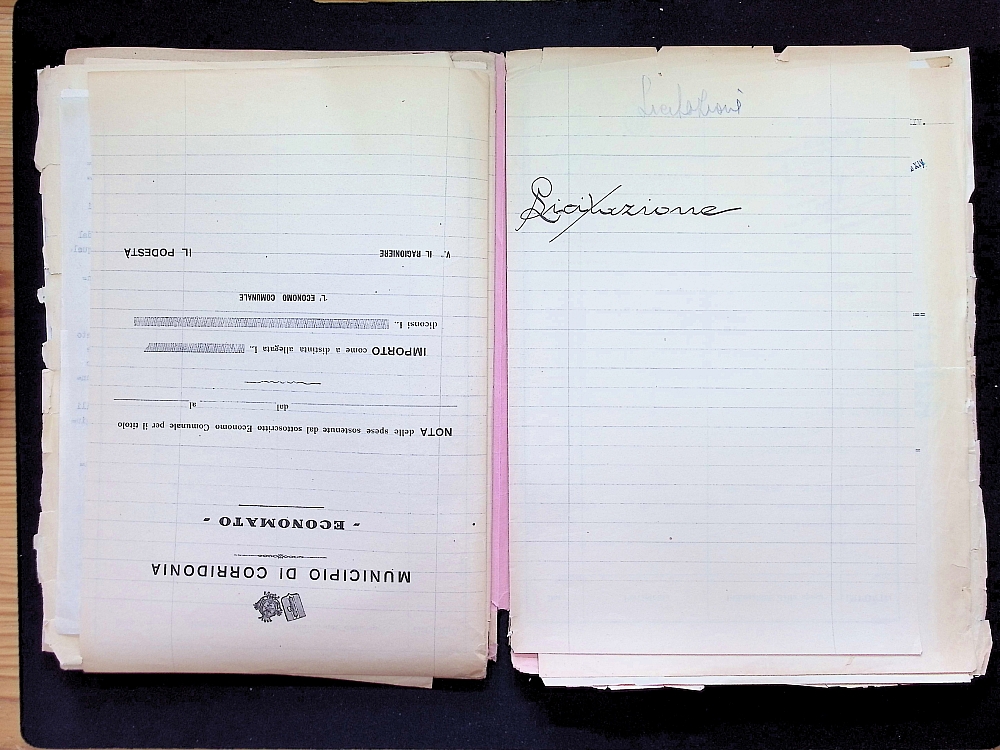 MUNICIPIO DI CORRIDONIA
- ECONOMATO -
NOTA delle spese sostenute dal sottoscritto Economo Comunale per il titolo
dal al
IMPORTO come a distinta allegata L.
diconsi L.
L' ECONOMO COMUNALE
V. IL RAGIONIERE IL PODESTÀ
Licitazioni
Licitazione